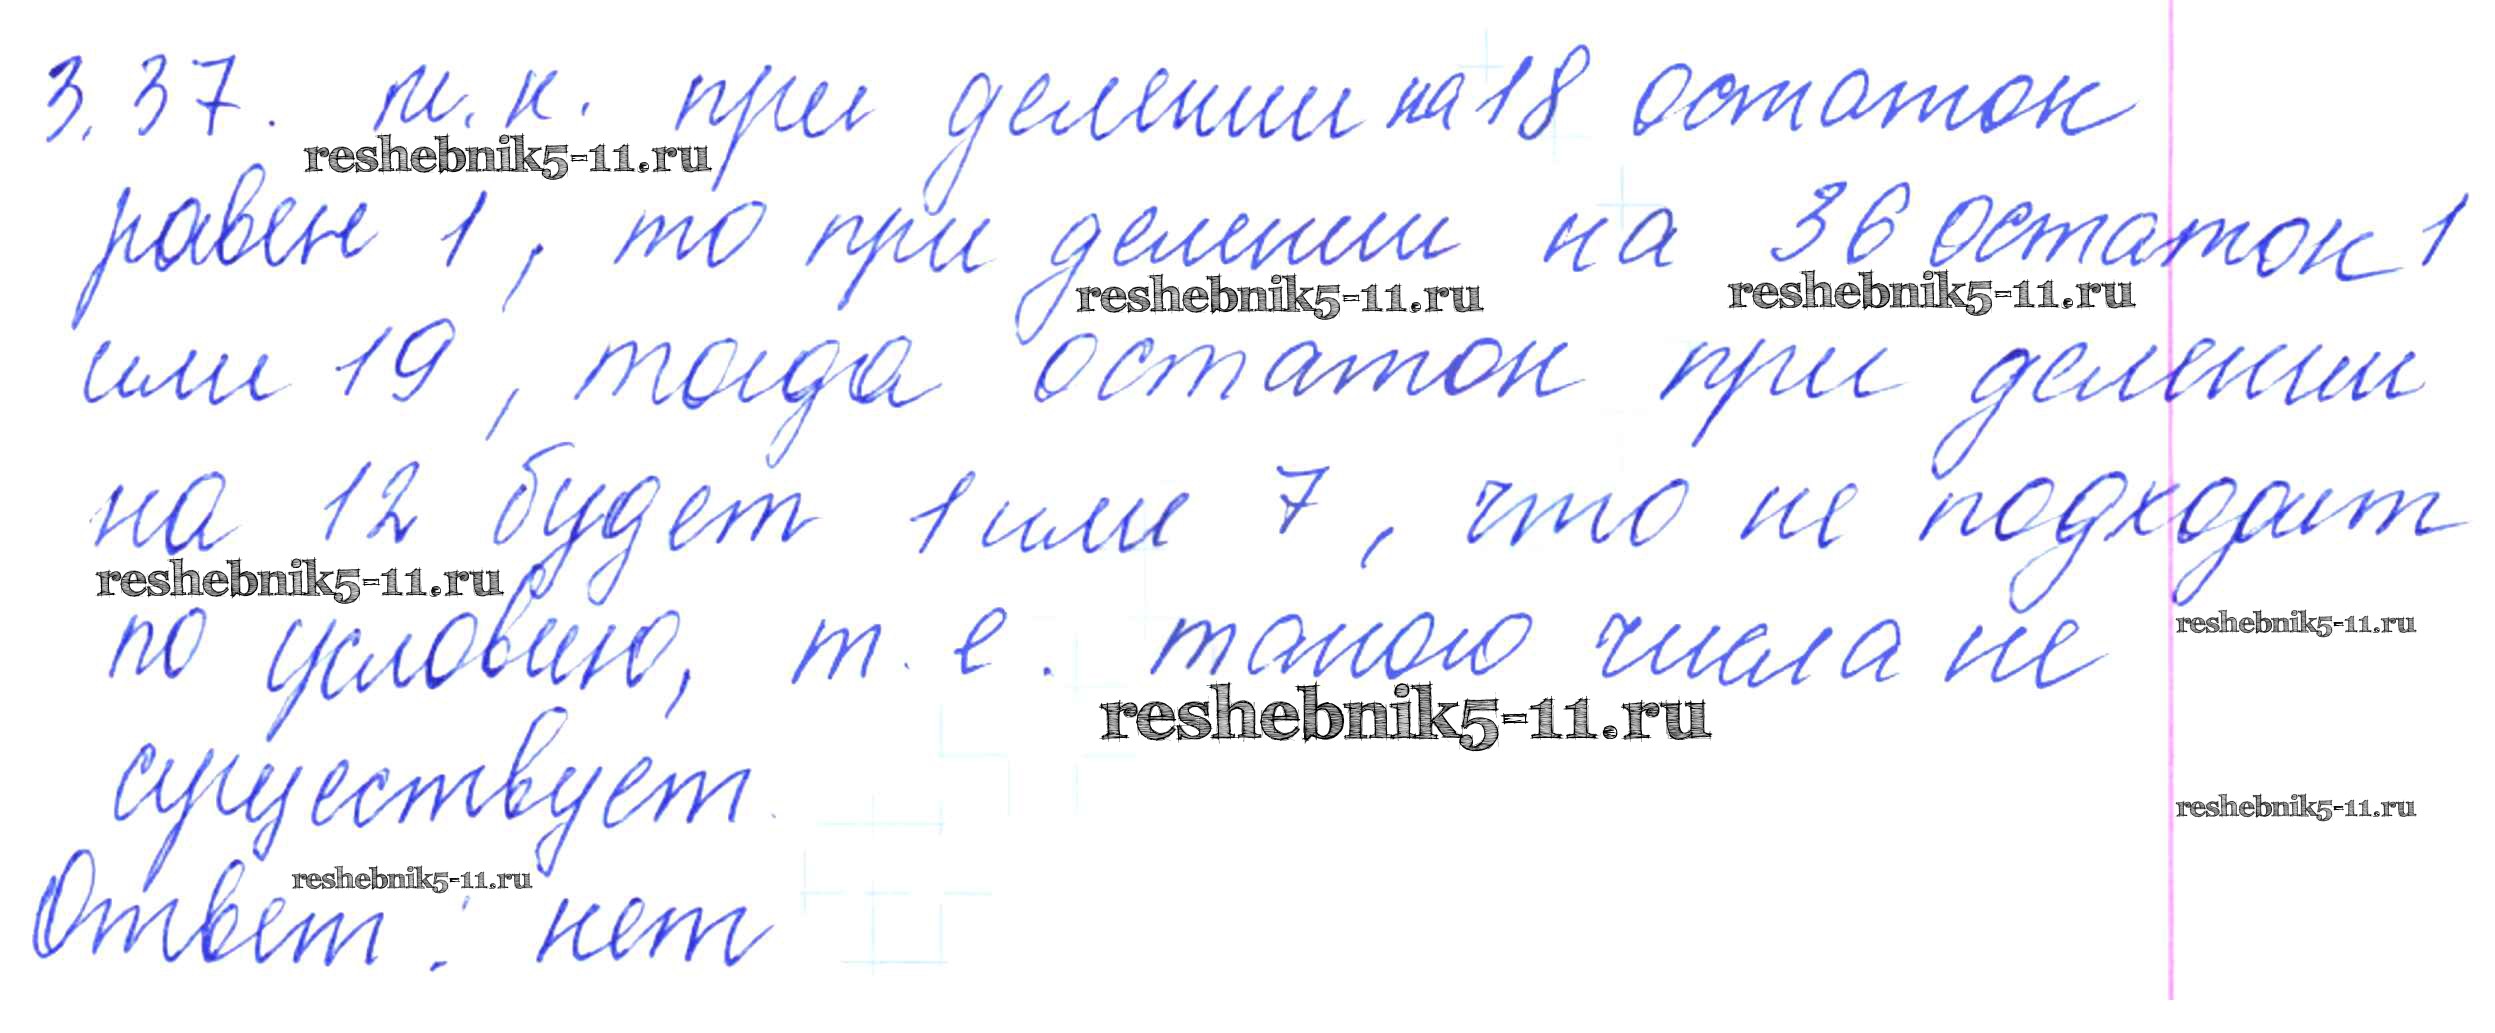 3.37. т.к. при делении на 18 остаток
reshebnik5-11.ru
равен 1, то при делении на 36 остаток 1
reshebnik5-11.ru reshebnik5-11.ru
или 19, тогда остаток при делении
на 12 будет 1 или 7, что не подходит
reshebnik5-11.ru
reshebnik5-11.ru
по условию, т.е. такого числа не
reshebnik5-11.ru
существует.
reshebnik5-11.ru
reshebnik5-11.ru
Ответ: нет